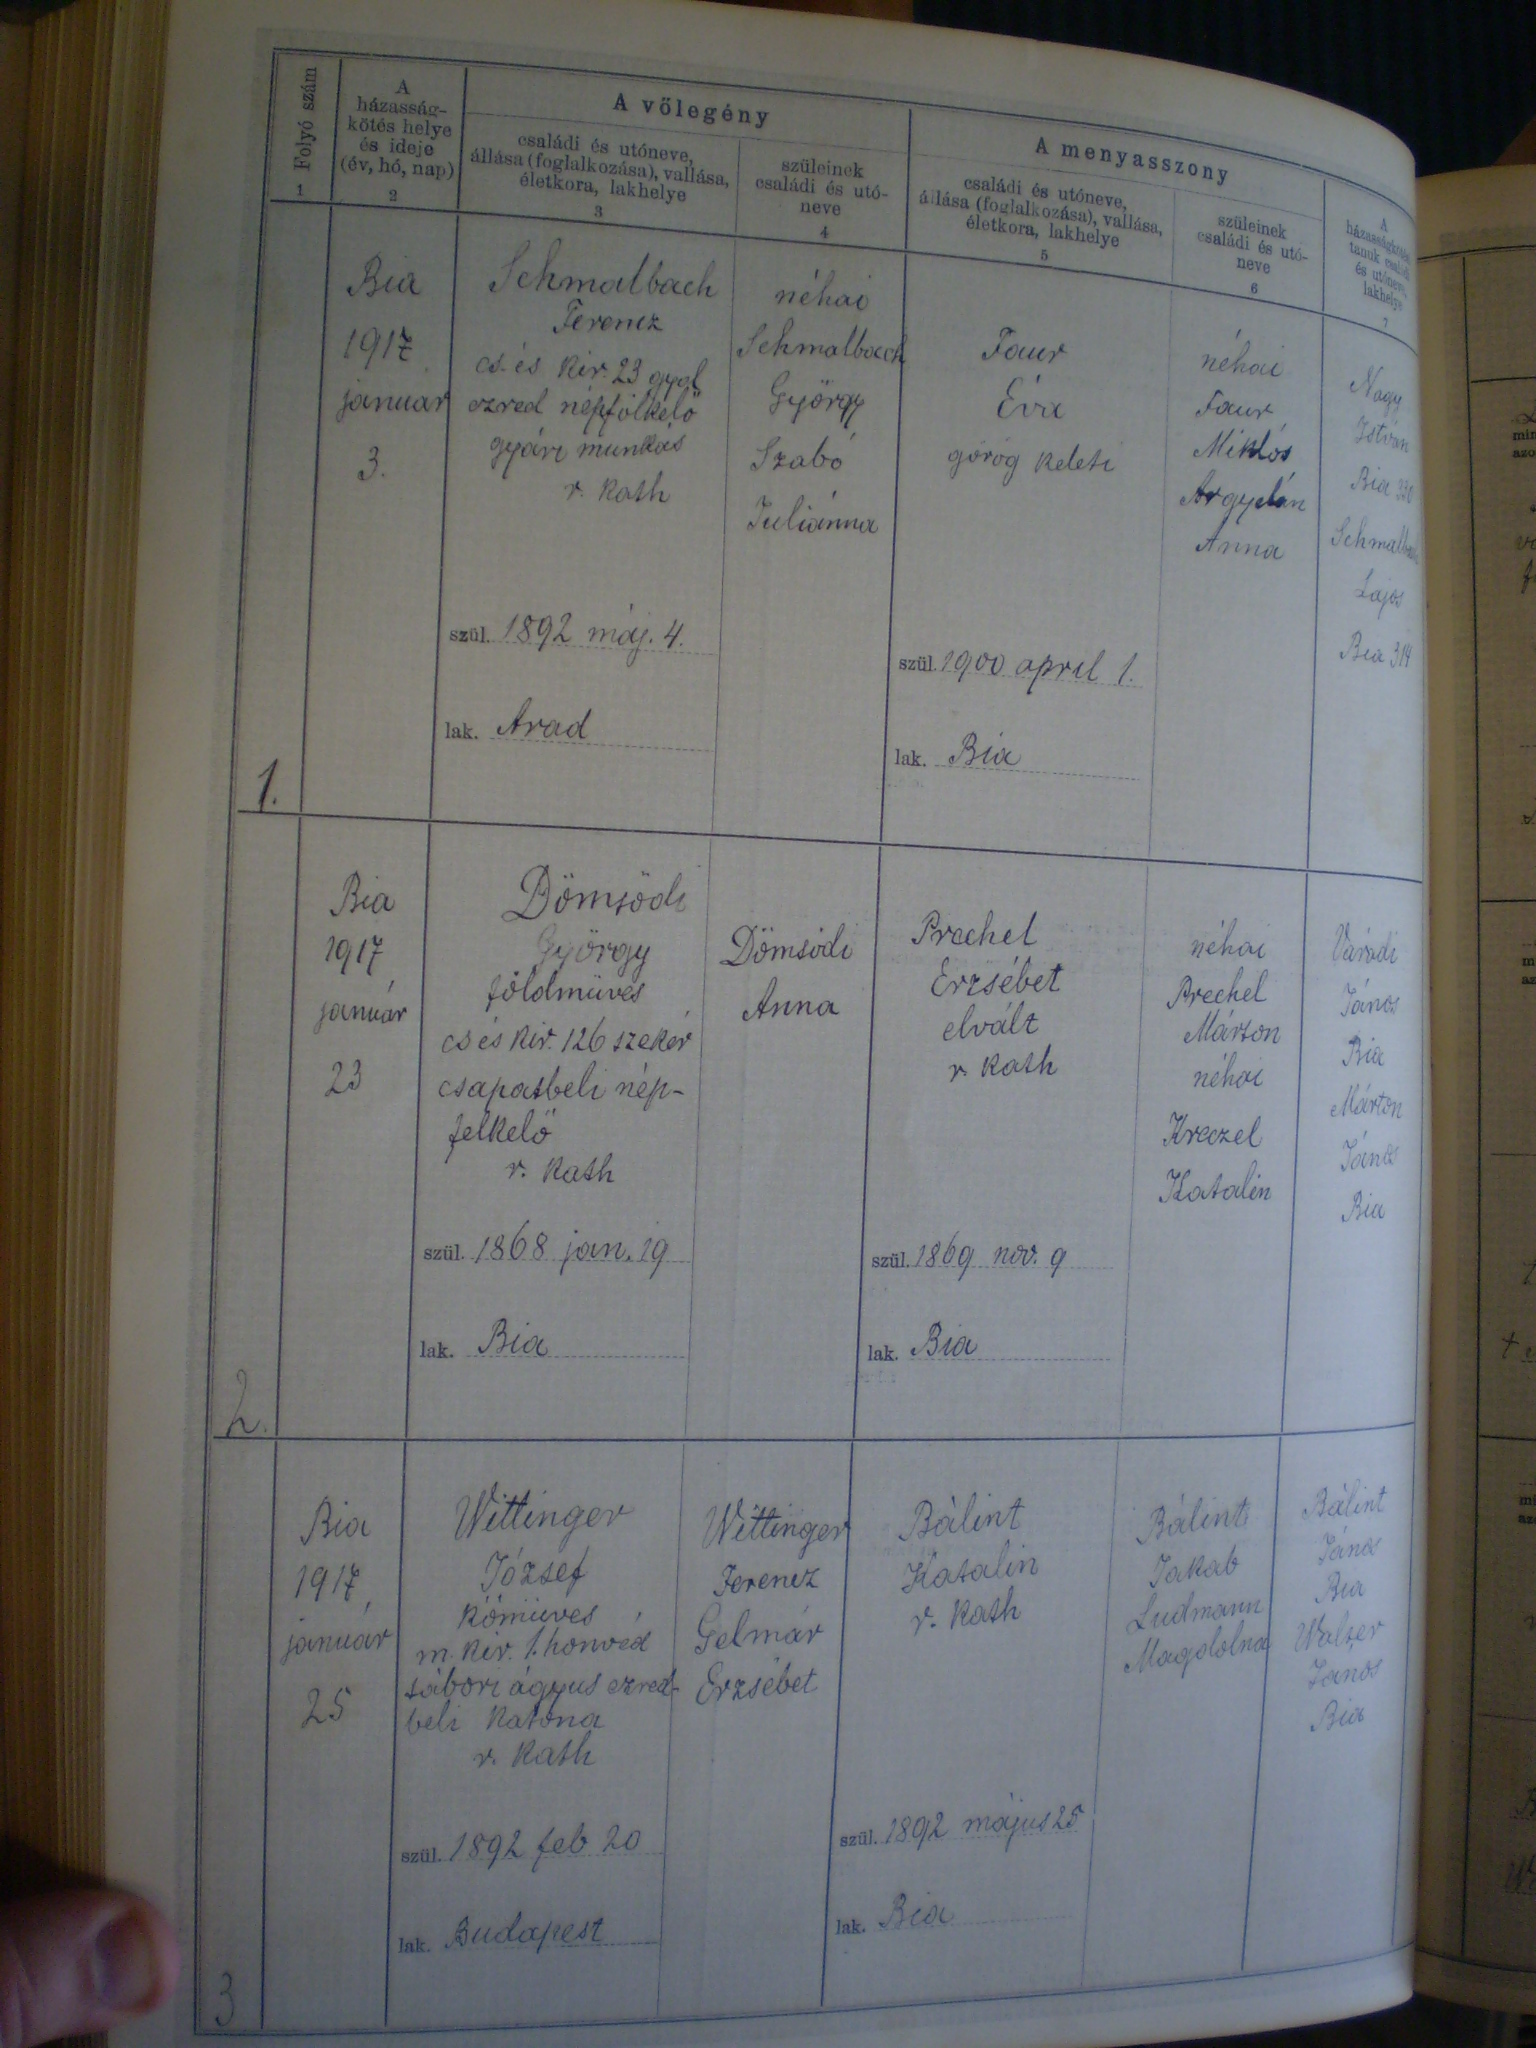 Folyó szám
1
A
házasság-
kötés helye
és ideje
(év, hó, nap)
2
A vőlegény
családi és utóneve,
állása (foglalkozása), vallása,
életkora, lakhelye
3
szüleinek
családi és utó-
neve
4
A menyasszony
családi és utóneve,
állása (foglalkozása), vallása,
életkora, lakhelye
5
szüleinek
családi és utó-
neve
6
A
házasságkötési
tanuk családi
és utóneve,
lakhelye
7
1.
Bia
1917
január
3.
Schmalbach
Ferencz
cs. és kir. 23 gyal
ezred népfölkelő
gyári munkás
r. kath
szül. 1892 máj. 4.
lak. Arad
néhai
Schmalbach
György
Szabó
Juliánna
Faur
Éva
görög keleti
szül. 1900 april 1.
lak. Bia
néhai
Faur
Miklós
Argyelán
Anna
Nagy
István
Bia 330
Schmalbach
Lajos
Bia 314
2.
Bia
1917
január
23
Dömsödi
György
földmüves
cs és kir. 126 szekér
csapatbeli nép-
felkelő
r. kath
szül. 1868 jan. 19
lak. Bia
Dömsödi
Anna
Prechel
Erzsébet
elvált
r. kath
szül. 1869 nov. 9
lak. Bia
néhai
Prechel
Márton
néhai
Kreczel
Katalin
Váradi
János
Bia
Márton
János
Bia
3
Bia
1917
január
25
Wittinger
József
kőmüves
m. kir. 1. honvéd
tábori ágyus ezred-
beli katona
r. kath
szül. 1892 feb 20
lak. Budapest
Wittinger
Ferencz
Gelmár
Erzsébet
Bálint
Katalin
r. kath
szül. 1892 május 25
lak. Bia
Bálint
Jakab
Ludmann
Magdolna
Bálint
János
Bia
Walzer
János
Bia